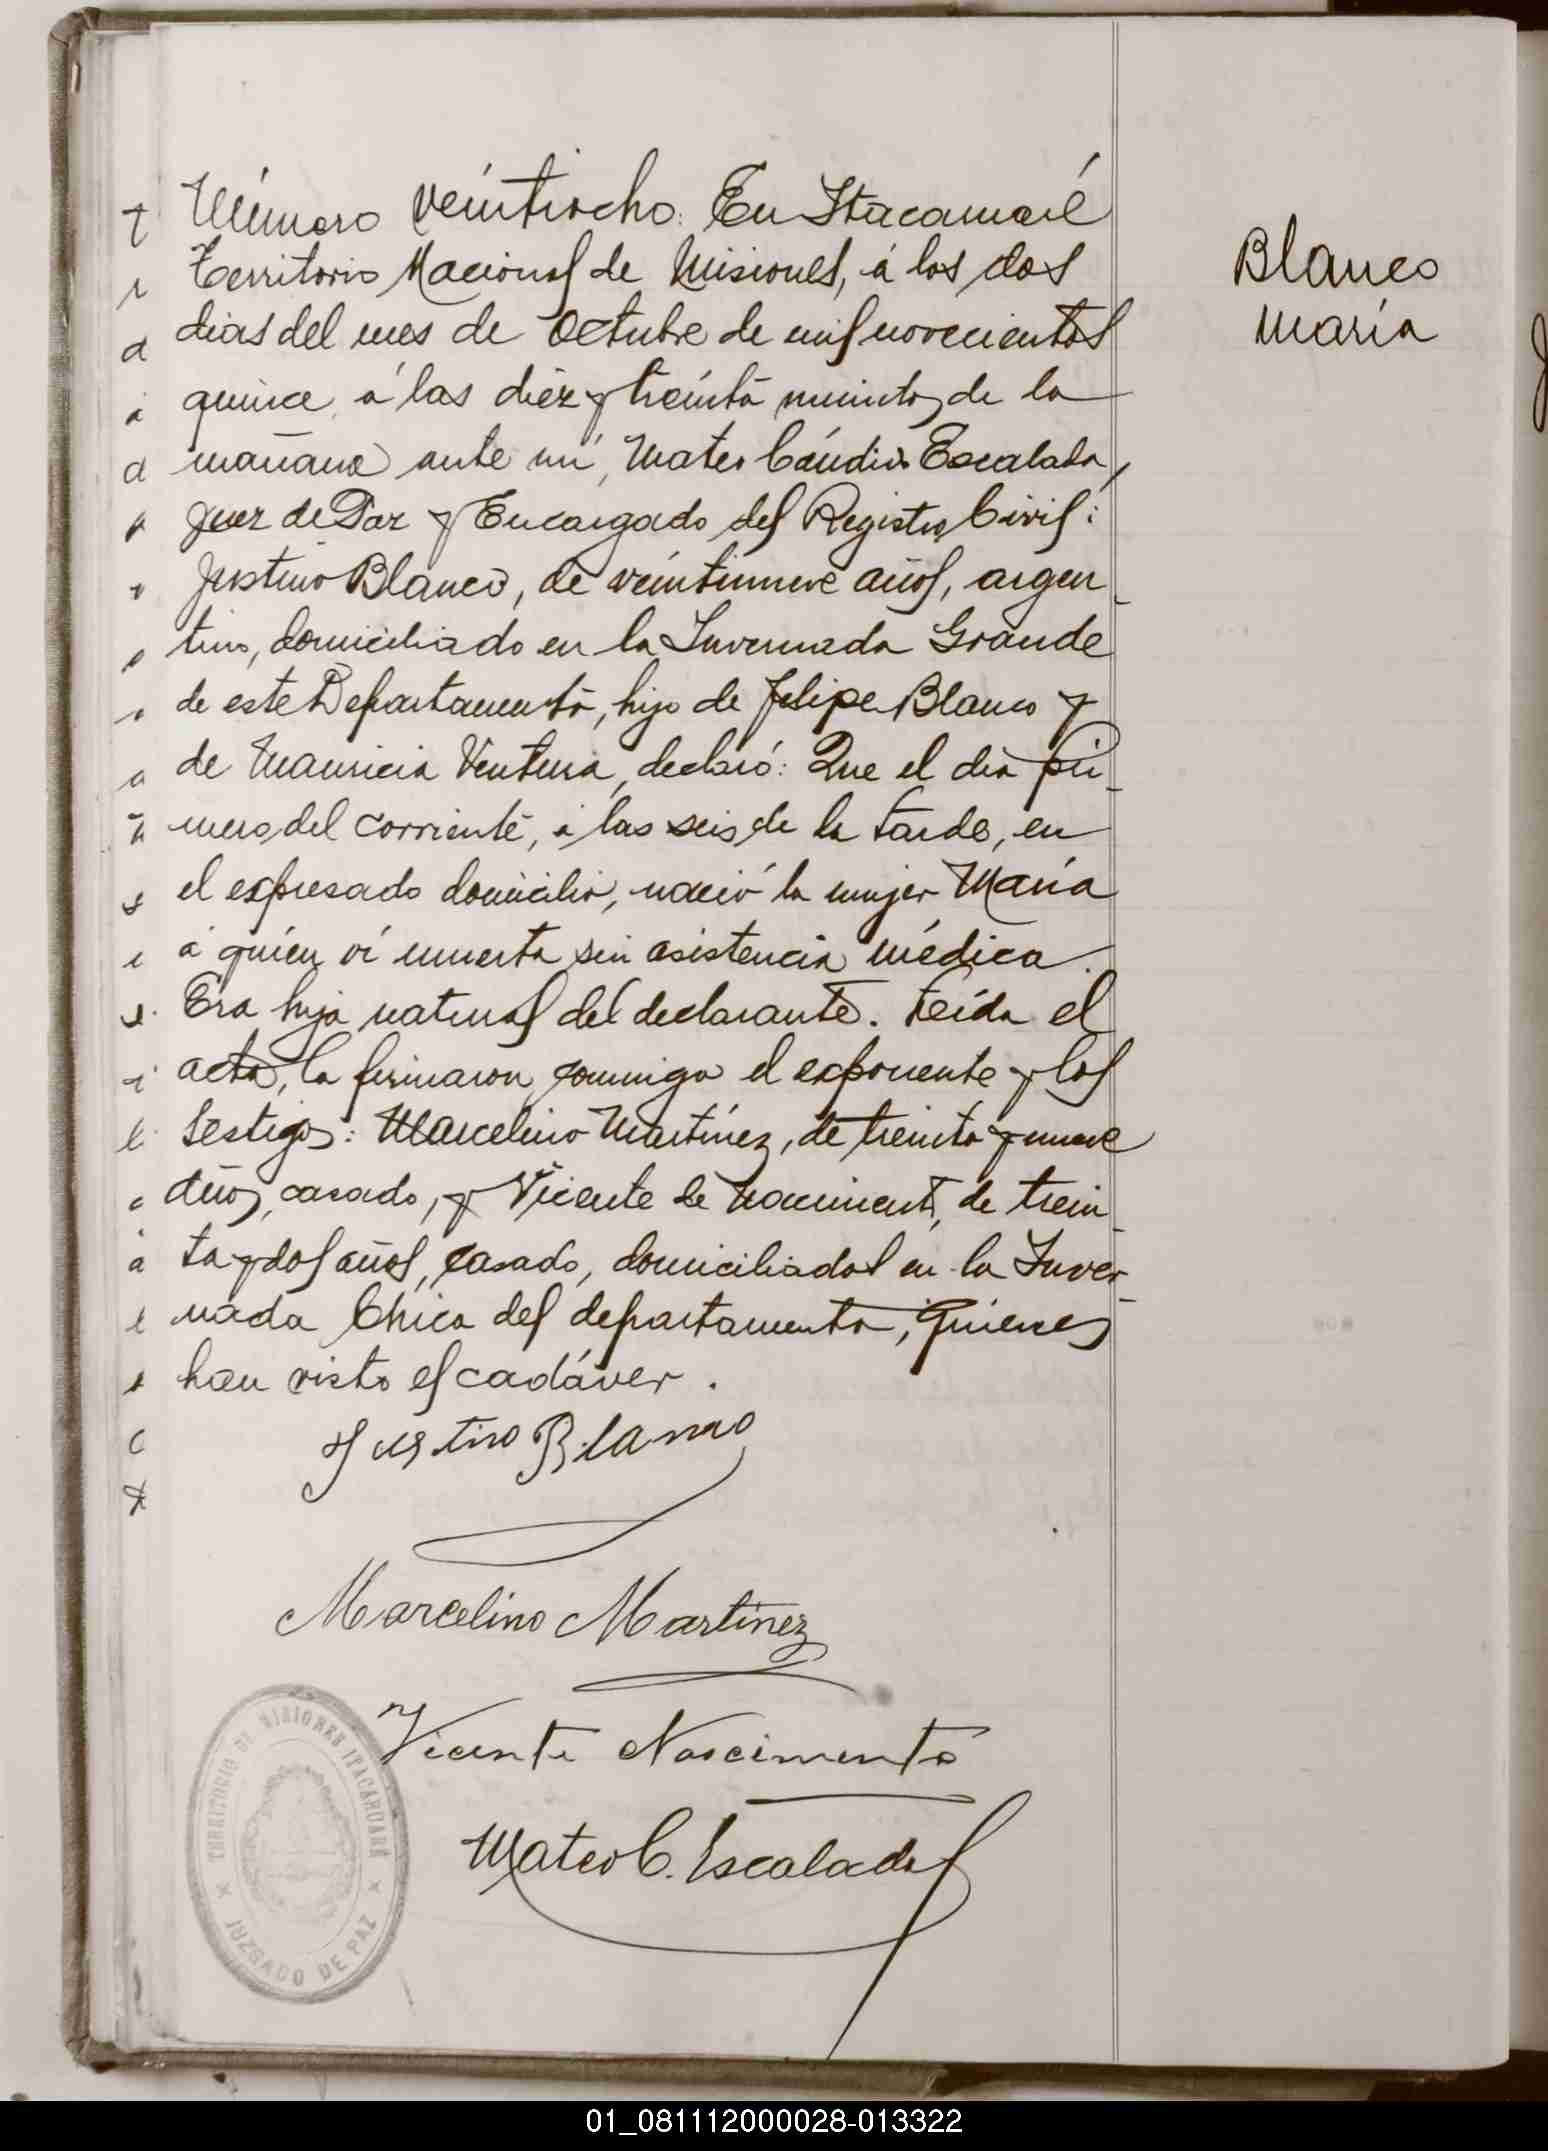 Número veintiocho: En Itacaruaré
Territorio Nacional de Misiones, á los dos
dias del mes de Octubre de mil novecientos
quince, á las diez y treinta minutos de la
mañana ante mí, Mateo Cándido Escalada,
Juez de Paz y Encargado del Registro Civil:
Justino Blanco, de veintinueve años, argen-
tino, domiciliado en la Invernada Grande
de este Departamento, hijo de Felipe Blanco y
de Mauricia Ventura, declaró: Que el día pri-
mero del corriente, á las seis de la tarde, en
el expresado domicilio, nació la mujer María
á quien ví muerta sin asistencia médica.
Era hija natural del declarante. Leída el
acta, la firmaron conmigo el exponente y los
testigos: Marcelino Martínez, de treinta y nueve
años, casado, y Vicente de Nacimento, de trein-
ta y dos años, casado, domiciliados en la Inver-
nada Chica del departamento, quienes
han visto el cadáver.
Justino Blanco
Marcelino Martinez
Vicente Nascimento
Mateo C. Escalada
Blanco
María
TERRITORIO DE MISIONES ITACARUARÉ
JUZGADO DE PAZ
01_081112000028-013322